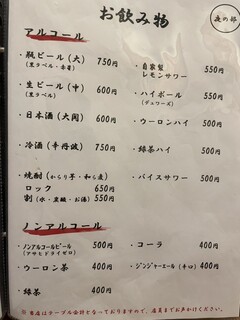 お飲み物
夜の部
アルコール
・瓶ビール(大) 750円
(黒ラベル・赤星)
・自家製
レモンサワー 550円
・生ビール(中) 600円
(黒ラベル)
・ハイボール 550円
(デュワーズ)
・日本酒(大関) 600円
・ウーロンハイ 500円
・冷酒(辛丹波) 750円
・緑茶ハイ 500円
・焼酎(からり芋・和ら麦)
ロック 650円
割(水・炭酸・お湯) 550円
・バイスサワー 500円
ノンアルコール
・ノンアルコールビール 500円
(アサヒドライゼロ)
・コーラ 400円
・ウーロン茶 400円
・ジンジャーエール(辛口) 400円
・緑茶 400円
※ 当店はテーブル会計となっておりますので、店員までお声がけください。